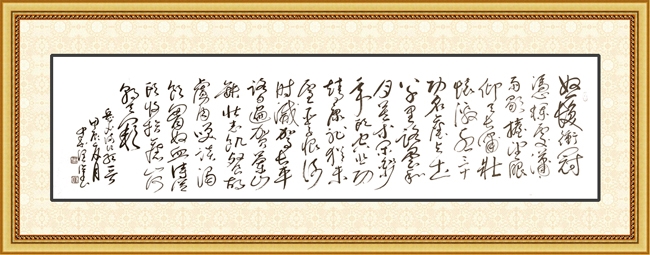 怒髮衝冠
憑欄處瀟
雨歇擡望眼
仰天長嘯壯
懷激烈三十
功名塵與土
八千里路雲和
月莫等閒
年頭空悲切
靖康恥猶未
雪臣子恨何
時滅駕長車
踏破賀蘭山
缺壯志飢餐胡
虜肉笑談渴
飲匈奴血待從
頭收拾舊山河
朝天闕
岳飛滿江紅